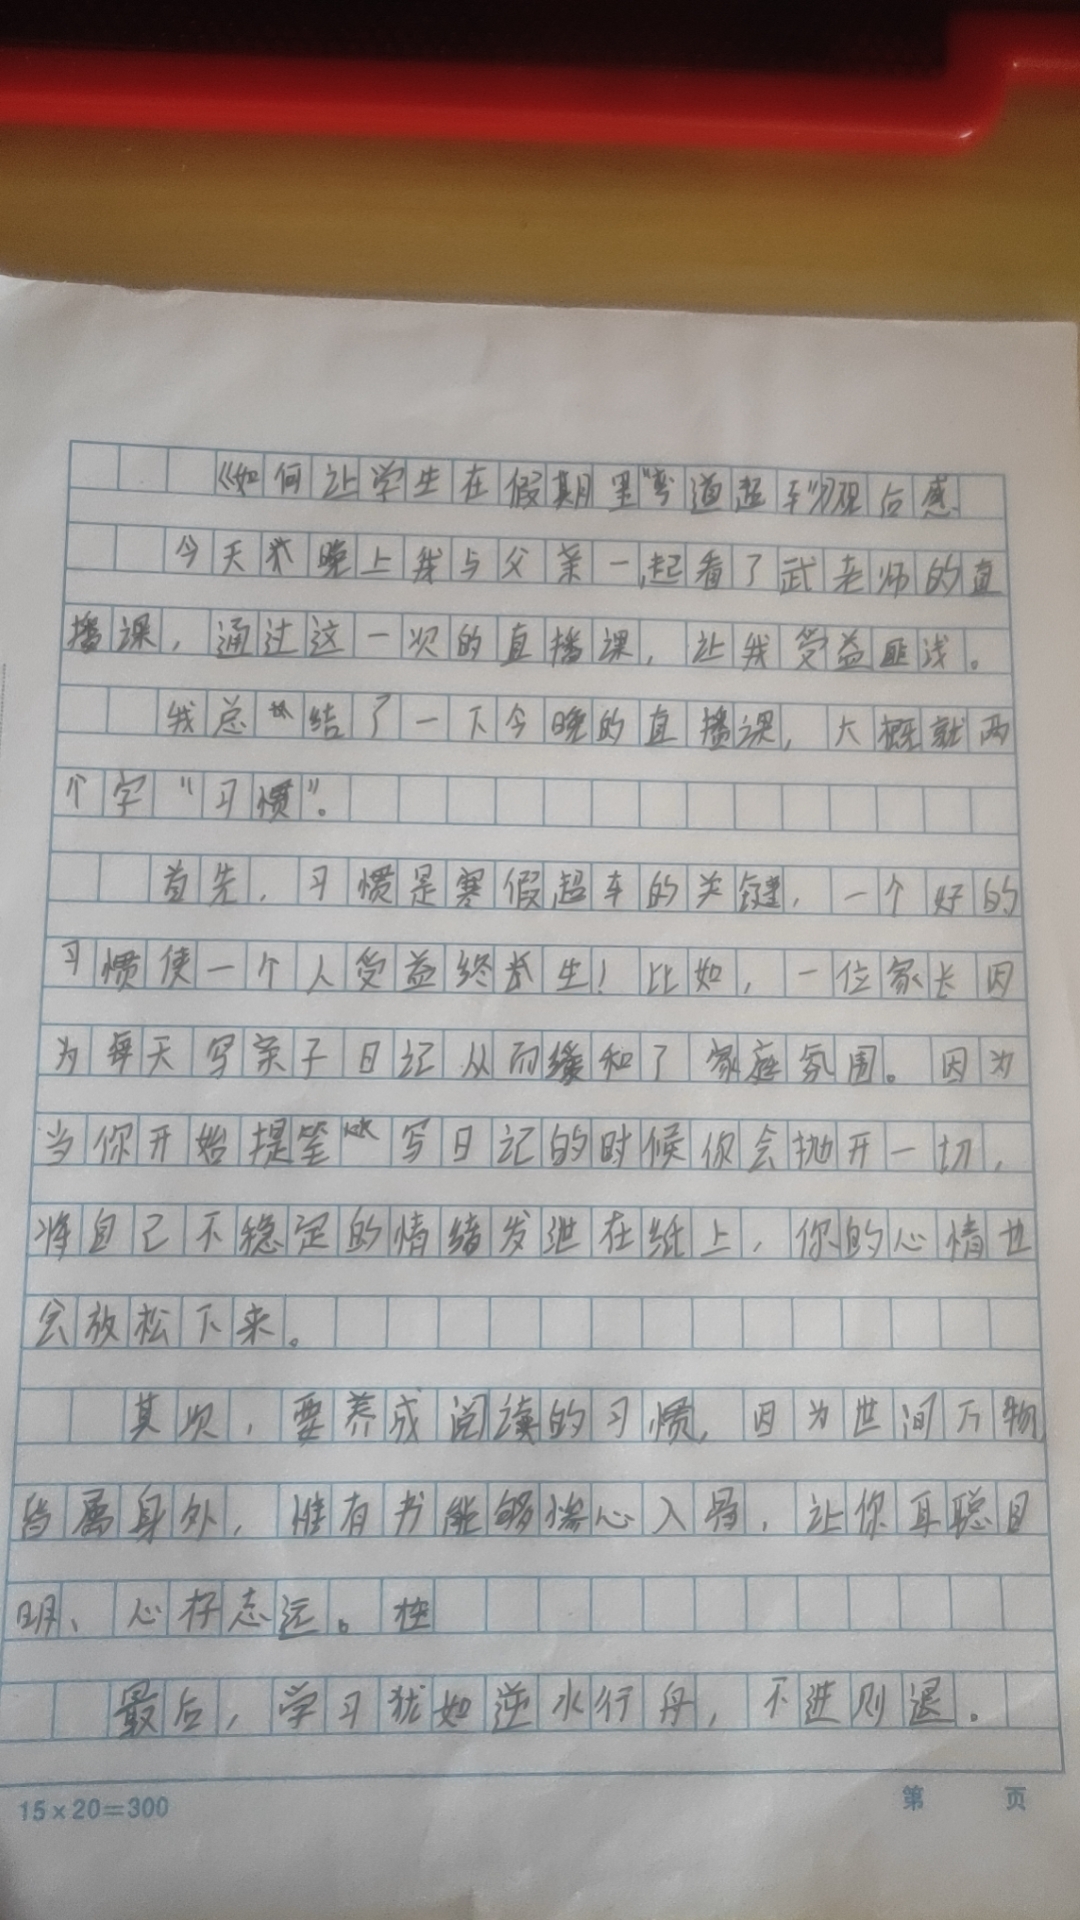 《如何让学生在假期里“弯道超车”》观后感
今天晚上我与父亲一起看了武老师的直
播课，通过这一次的直播课，让我受益匪浅。
我总结了一下今晚的直播课，大概就两
个字“习惯”。
首先，习惯是寒假超车的关键，一个好的
习惯使一个人受益终生！比如，一位家长因
为每天写亲子日记从而缓和了家庭氛围。因为
当你开始提笔写日记的时候你会抛开一切，
将自己不稳定的情绪发泄在纸上，你的心情也
会放松下来。
其次，要养成阅读的习惯，因为世间万物
皆属身外，惟有书能够心入骨，让你耳聪目
明、心存志远。
最后，学习犹如逆水行舟，不进则退。
15×20=300
第 页